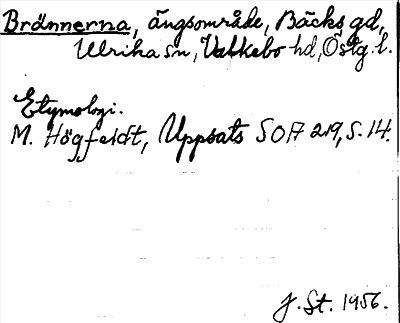 Brännerna, ängsområde, Bäcks gd,
Ulrika sn, Valkebo hd, Östg. l.
Etymologi.
M. Högfeldt, Uppsats SOA 219, S. 14.
J. St. 1956.